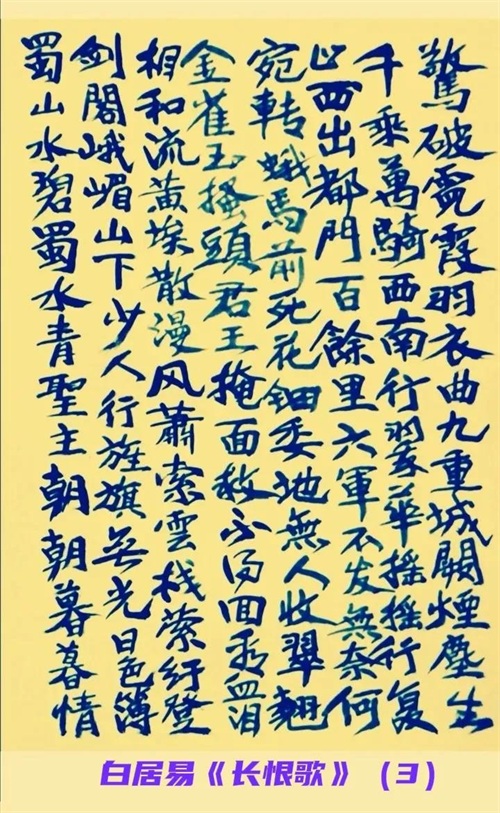 驚破霓霞羽衣曲九重城闕煙塵生
千乘萬騎西南行翠華摇摇行复
止西出都門百餘里六軍不发無奈何
宛轉蛾馬前死花钿委地無人收翠翹
金雀玉搔頭君王掩面救不得回看血泪
相和流黄埃散漫风蕭索雲栈萦紆登
剑閣峨嵋山下少人行旌旗無光日色薄
蜀山水碧蜀水青聖主朝朝暮暮情
白居易《长恨歌》（3）